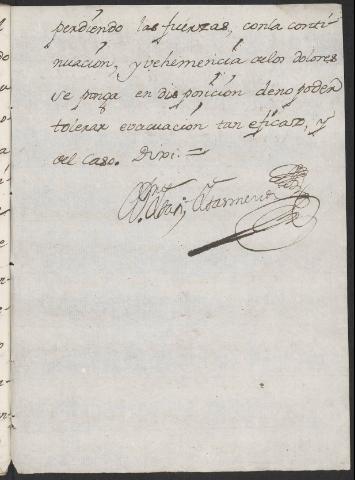 perdiendo las fuerzas, con la conti
nuacion, y vehemencia de los dolores
se ponga en disposicion de no poder
tolerar evacuacion tan eficaz, y
del Caso. Dixi.=